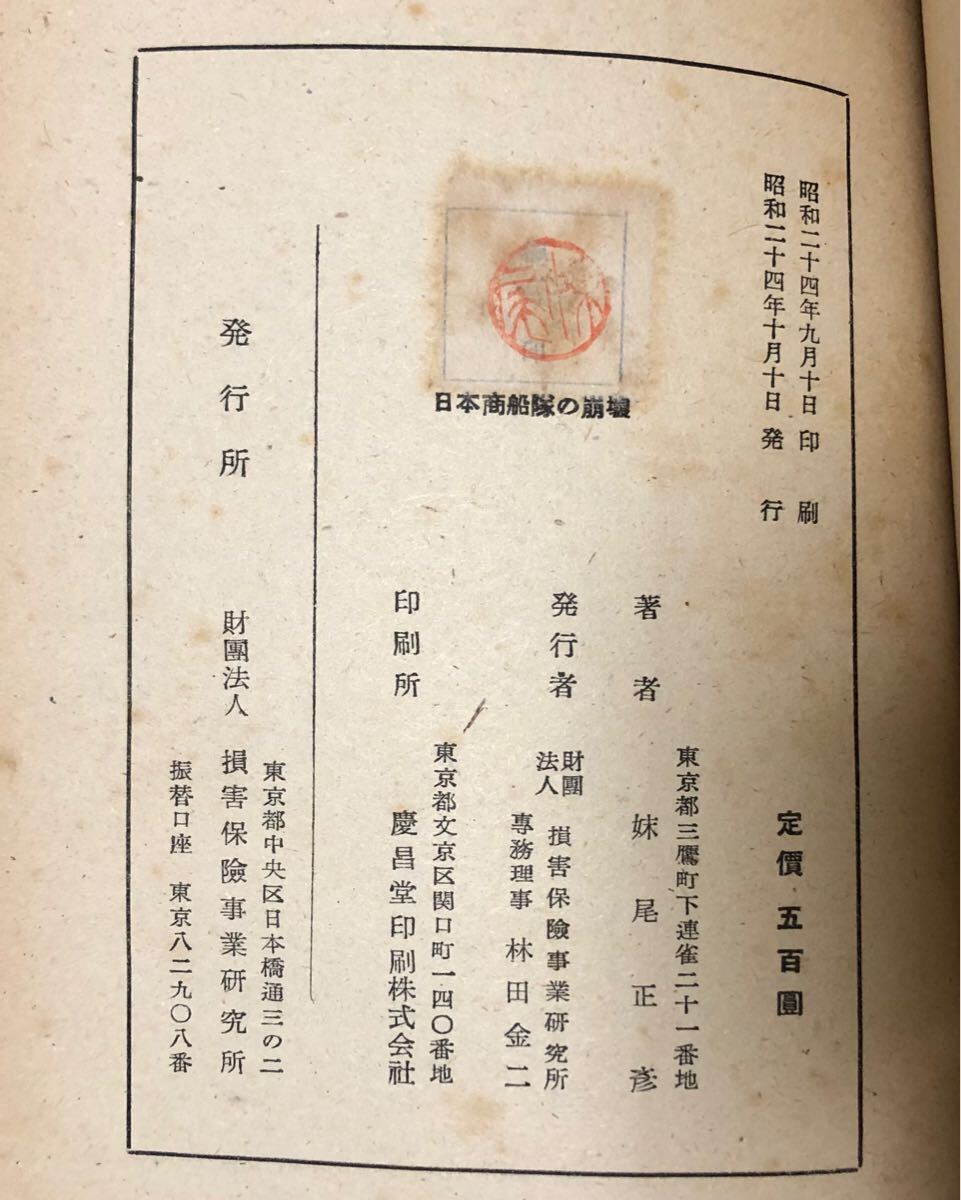 昭和二十四年九月十日 印刷
昭和二十四年十月十日 発行
定價 五百圓
日本商船隊の崩壞
東京都三鷹町下連雀二十一番地
著者 妹尾正彦
発行者 財團法人 損害保險事業研究所
専務理事 林田金二
東京都文京区関口町一四〇番地
印刷所 慶昌堂印刷株式会社
東京都中央区日本橋通三の二
発行所 財團法人 損害保險事業研究所
振替口座 東京八二九〇八番